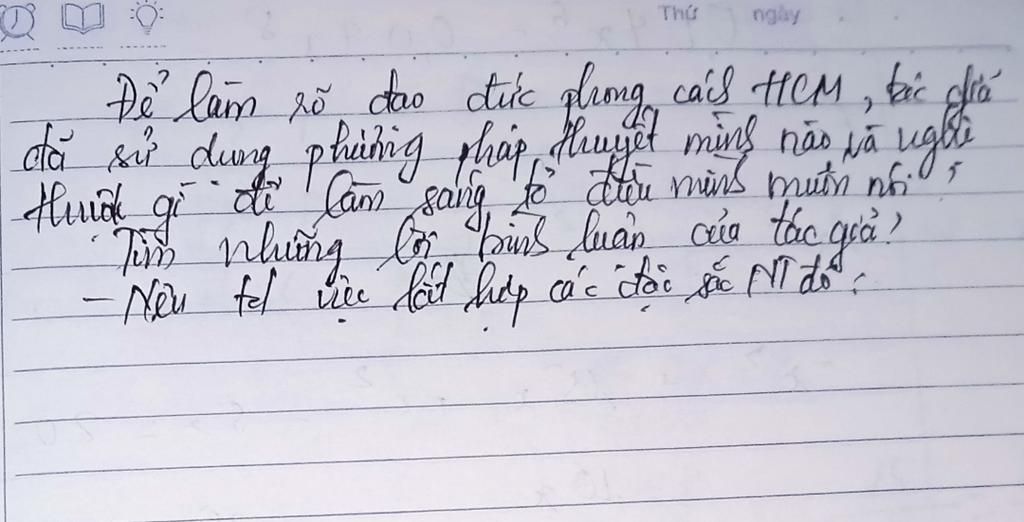 Thứ ngày
Để làm rõ đạo đức phong cách HCM, tác giả
đã sử dụng phương pháp thuyết minh nào và nghệ
thuật gì để làm sáng tỏ điều mình muốn nói?
Tìm những lời bình luận của tác giả?
- Nêu td việc kết hợp các đặc sắc NT đó?